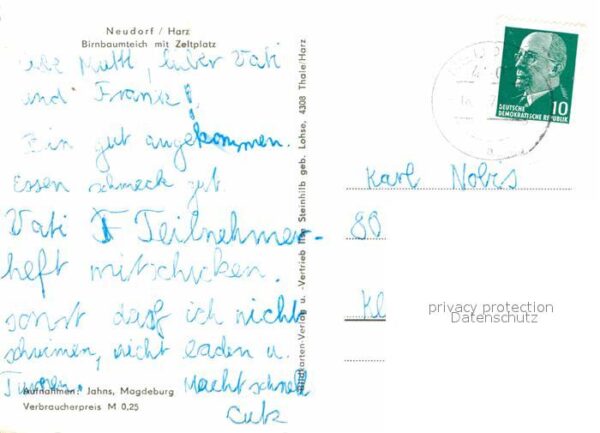 Neudorf / Harz
Birnbaumteich mit Zeltplatz
Mutti, lieber Vati
und Frank!
Bin gut angekommen.
Essen schmeck gut.
Vati Teilnehmer-
heft mitschicken.
sonst darf ich nicht
schwimen, nicht baden u.
Macht schnell
Aufnahmen: Jahns, Magdeburg
Verbraucherpreis M 0,25
Karten-Verlag u. -Vertrieb Ilse Steinhilb geb. Lohse, 4308 Thale/Harz
DEUTSCHE
DEMOKRATISCHE REPUBLIK
10
Karl Nobis
80
Kl
privacy protection
Datenschutz